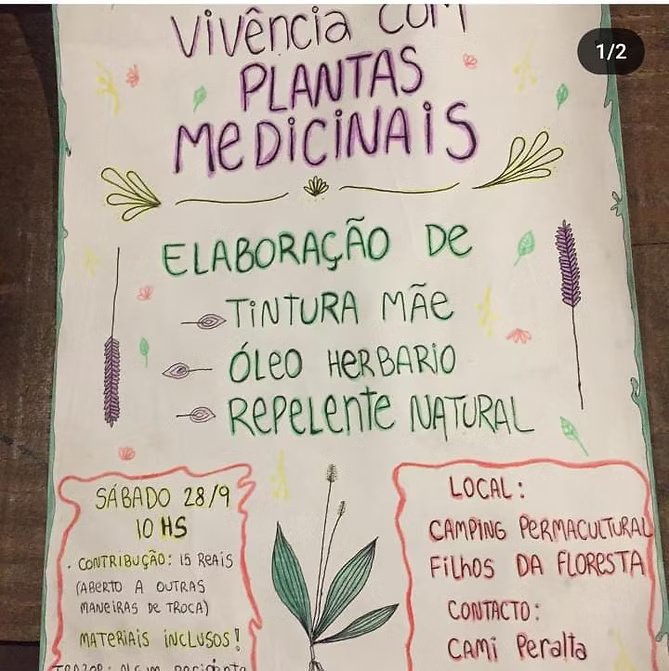 1/2
Vivência com
PLANTAS
MEDICINAIS
ELABORAÇÃO DE
TINTURA MÃE
ÓLEO HERBARIO
REPELENTE NATURAL
SÁBADO 28/9
10 HS
. CONTRIBUÇÃO: 15 REAIS
(ABERTO A OUTRAS
MANEIRAS DE TROCA)
MATERIAIS INCLUSOS!
TRAZER: ALGUM recipiente
LOCAL:
CAMPING PERMACULTURAL
FILHOS DA FLORESTA
CONTACTO:
CAMI PERALTA